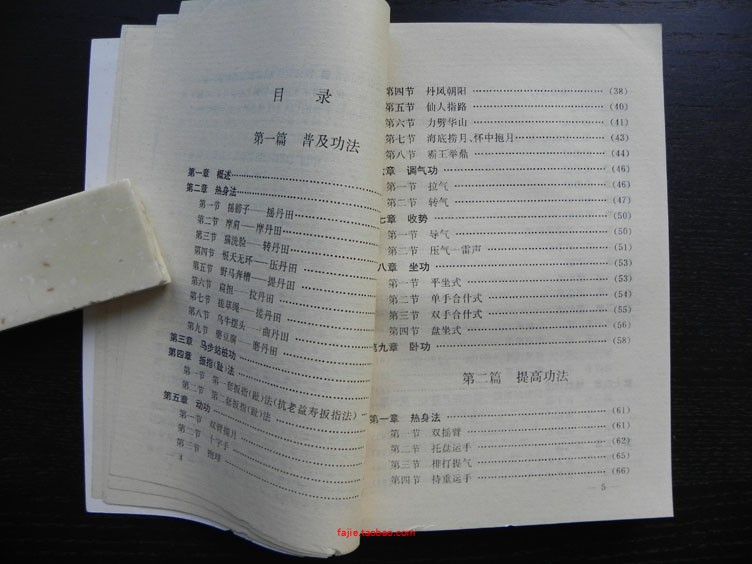 目 录
第一篇 普及功法
第一章 概述
第二章 热身法
第一节 摇筋子——摇丹田
第二节 摩肩——摩丹田
第三节 猫洗脸——转丹田
第四节 恨天无环——压丹田
第五节 野马奔槽——提丹田
第六节 扁担——拉丹田
第七节 搓草绳——搓丹田
第八节 乌牛摆头——曲丹田
第九节 磨豆腐——磨丹田
第三章 马步站桩功
第四章 扳指(趾)法
第一节 第一套扳指(趾)法(抗老益寿扳指法)
第二节 第二套扳指(趾)法
第五章 动功
第一节 双臂摘月
第二节 十字手
第三节
4
第四节 丹凤朝阳 (38)
第五节 仙人指路 (40)
第六节 力劈华山 (41)
第七节 海底捞月、怀中抱月 (43)
第八节 霸王举鼎 (44)
章 调气功 (46)
第一节 拉气 (46)
第二节 转气 (47)
七章 收势 (50)
第一节 导气 (50)
第二节 压气—雷声 (51)
八章 坐功 (53)
第一节 平坐式 (53)
第二节 单手合什式 (54)
第三节 双手合什式 (55)
第四节 盘坐式 (56)
第九章 卧功 (58)
第二篇 提高功法
第一章 热身法 (61)
第一节 双摇臂 (61)
第二节 托盘运手 (62)
第三节 排打提气 (65)
第四节 持重运手 (66)
— 5
fajie.taobao.com